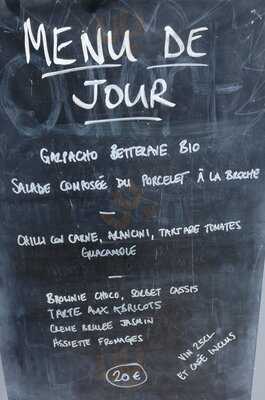 MENU DE
JOUR
GAZPACHO BETTERAVE BIO
SALADE COMPOSÉE DU PORCELET À LA BROCHE
CHILLI CON CARNE, ARANCINI, TARTARE TOMATES
GUACAMOLE
BROWNIE CHOCO, SORBET CASSIS
TARTE AUX ABRICOTS
CREME BRULEE JASMIN
ASSIETTE FROMAGES
VIN 25CL
ET CAFÉ INCLUS
20€